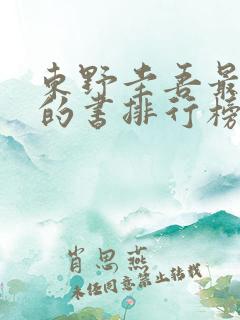 东野圭吾最
的书排行榜
肖思燕
未经同意禁止转载